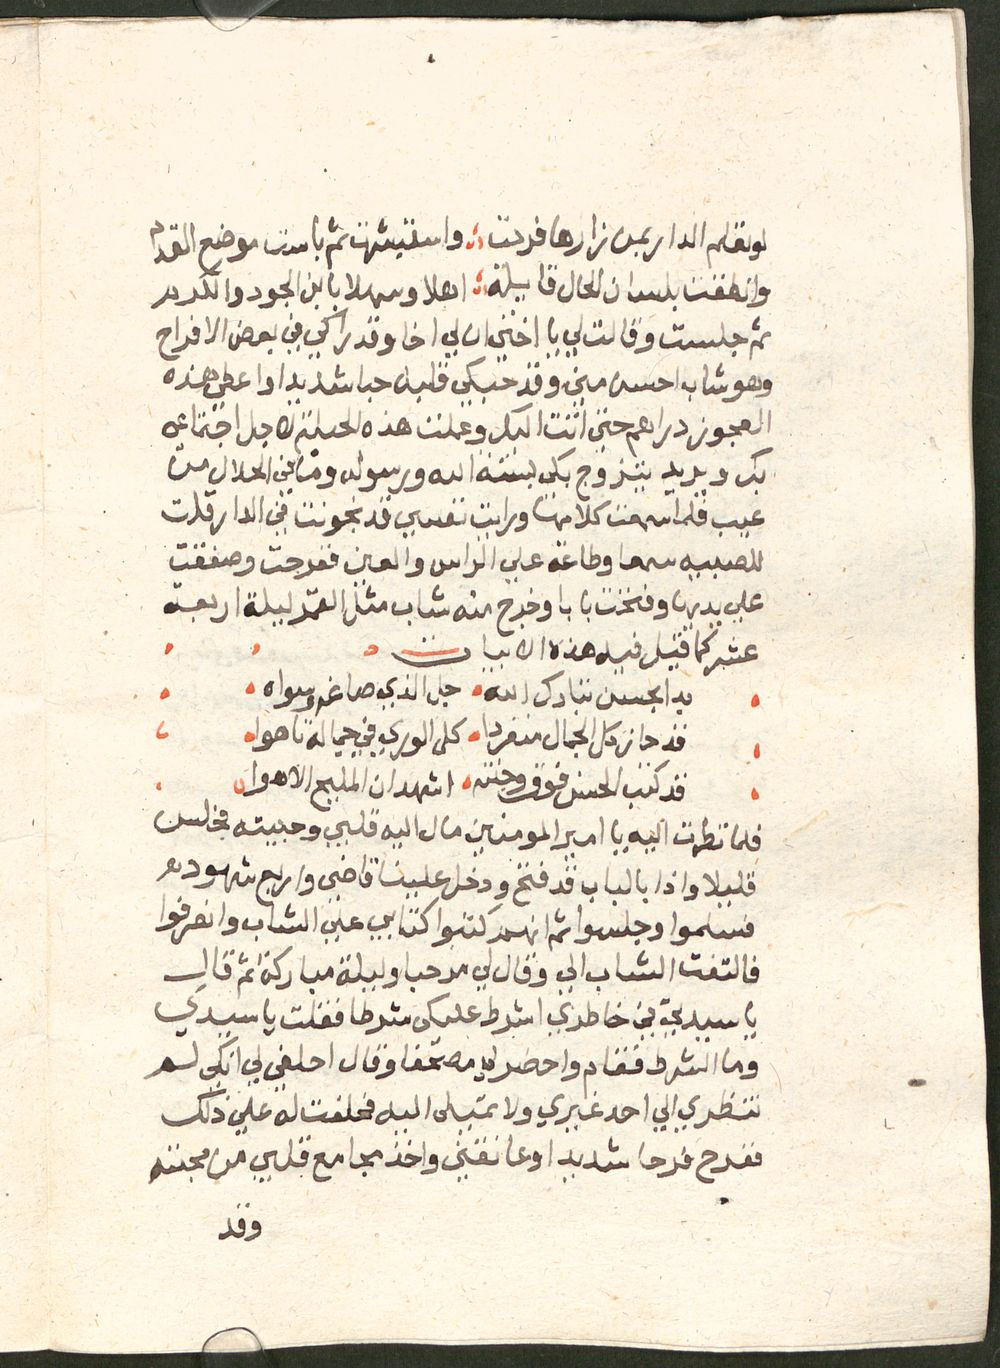 لو تعلم الدار بمن زارها فرحت ؛ واستبشرت ثم باست موضع القدم
وانطقت بلسان الحال قايلة ؛ اهلا وسهلا باهل الجود والكرم
ثم جلست وقالت لي يا اختي ان لي اخا وقد راكي في بعض الافراح
وهو شاب احسن مني وقد حبكي قلبه حبا شديدا واعطي هذه
العجوز دراهم حتى اتت اليك وعملت هذه الحيلة لاجل اجتماعه
بك ويريد يتزوج بكي بسنة الله ورسوله وما في الحلال من
عيب فلما سمعت كلامها ورايت نفسي قد نحوت في الدار قلت
للصبيه سمعا وطاعة علي الراس والعين ففرحت وصفقت
علي يديها وفتحت بابا وخرج منه شاب مثل القمر ليلة اربعة
عشر كما قيل فيه هذه الابيات
بدا بحسن تبارك الله • جل الذي صاغه وسواه
قد حاز كل الجمال منفردا • كل الوري في جماله تاهوا
قد كتب الحسن فوق وجنته • اشهد ان المليح الا هوا
فلما نظرت اليه يا امير المومنين مال اليه قلبي وحبيته فجلس
قليلا واذا بالباب قد فتح ودخل علينا قاضي واربع شهودم
فسلموا وجلسوا ثم انهم كتبوا كتابي علي الشاب وانصرفوا
فالتفت الشاب الي وقال لي مرحبا وليلة مباركة ثم قال
يا سيدتي في خاطري اشرط عليكي شرطا فقلت يا سيدي
وما الشرط فقام واحضر لي مصحفا وقال احلفي لي انكي لم
تنظري الي احد غيري ولا تميلي اليه فحلفت له علي ذلك
ففرح فرحا شديدا وعانقني واخذ مجامع قلبي من محبته
وقد